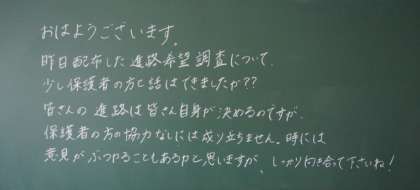 おはようございます。
昨日配布した進路希望調査について、
少し保護者の方と話はできましたか??
皆さんの進路は皆さん自身が決めるのですが、
保護者の方の協力なしには成り立ちません。時には
意見がぶつかることもあるかと思いますが、しっかり向き合って下さいね!